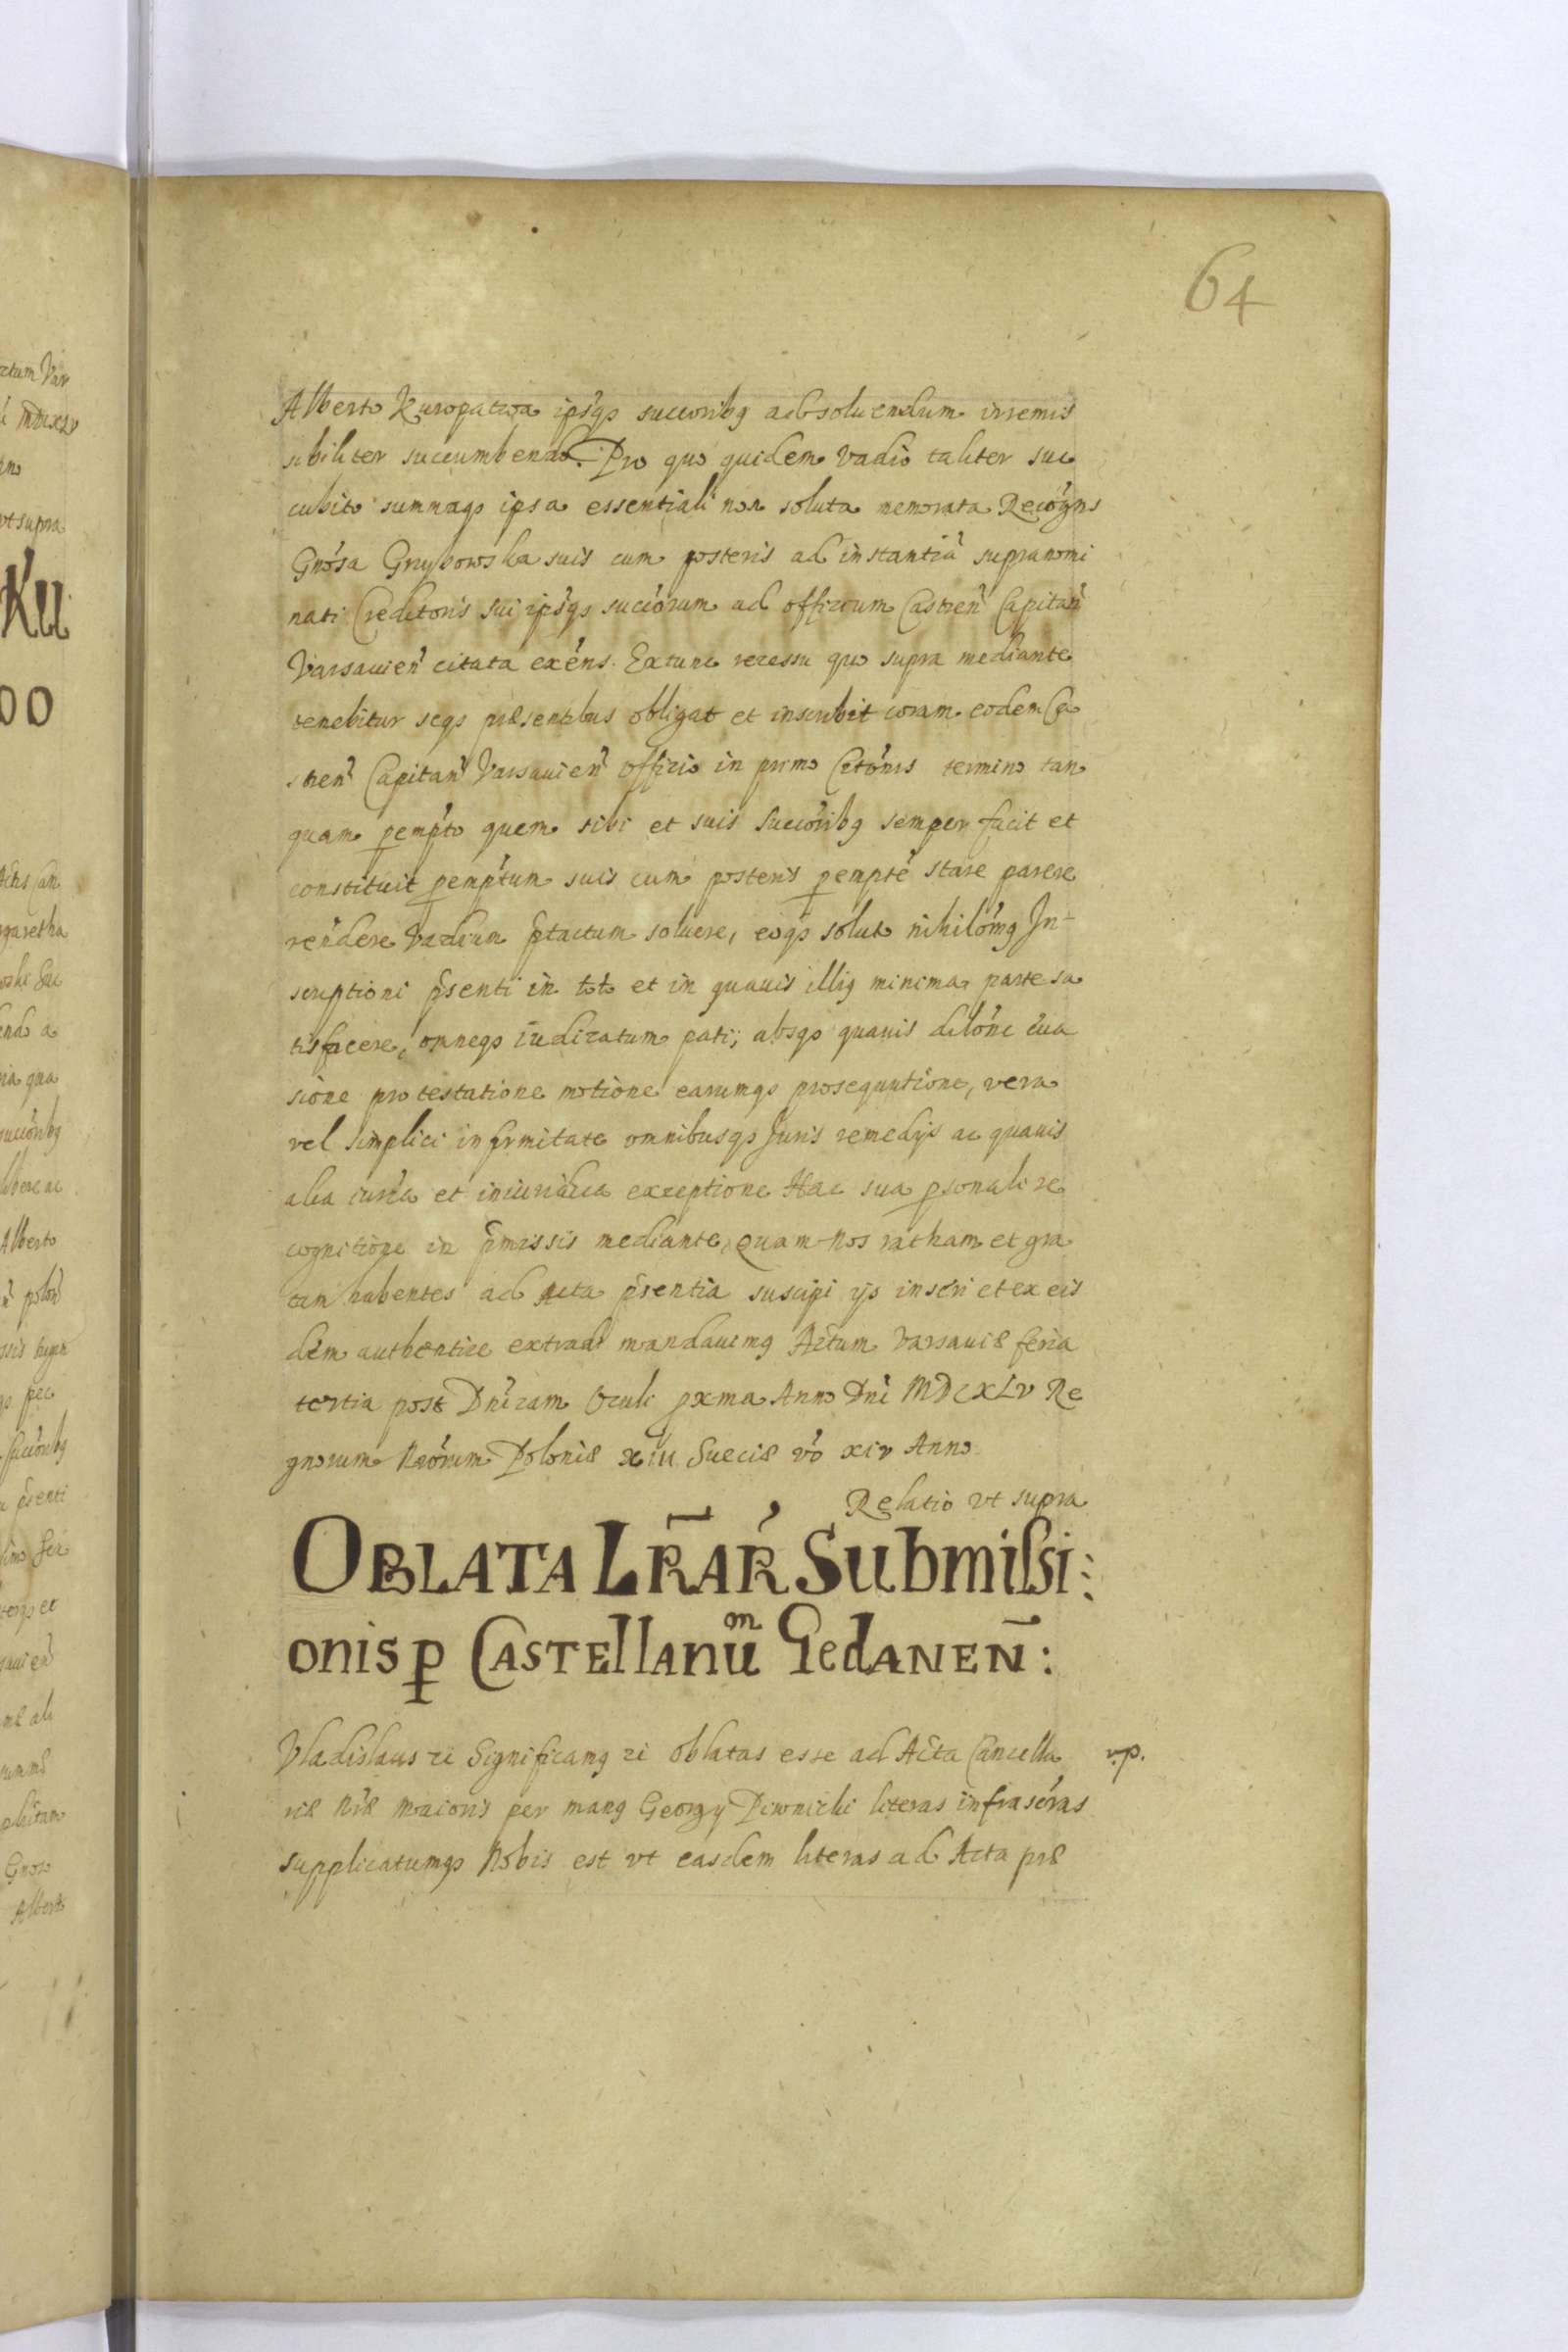 64
Alberto Kuropatwa ipsiqs succoribq absoluendum irremis
sibiliter succumbendo. Pro quo quidem vadio taliter suc
cubito summaqs ipsa essentiali non soluta memorata Recogns
Gnosa Grzybowska suis cum posteris ad instantiā supranomi
nati Creditoris sui ipsiqs succorum ad officium Castren Capitan
Varsauien citata exens. Extunc recessu quo supra mediante
tenebitur seqs præsentibus obligat et inscribit coram eodem Ca
stren Capitan Varsauien officio in primo Citonis termino tan
quam pempto quem sibi et suis succoribq semper facit et
constituit pemptum suis cum posteris pempte stare parere
rendere Vadium ptactum soluere, eoqs soluto nihilomq In-
scriptioni psenti in toto et in quauis illiq minima parte sa
tisfacere, omneqs iudicatum pati; absqs quauis dilone eua
sione protestatione motione earumqs prosequutione, vera
vel simplici infirmitate omnibusqs Juris remedijs ac quauis
alia iur'ca et iniuridica exceptione Hac sua psonali re
cognitione in pmissis mediante, quam nos ratham et gra
tam habentes ad Acta psentia suscipi ijs inseri et ex eis
dem authentice extradi mandauimq Actum Varsauiæ feria
tertia post Dnicam Oculi pxma Anno Dni MDCXLV Re
gnorum Nrorum Poloniæ xiii Sueciæ vo xiv Anno
Relatio vt supra
OBLATA LRAR Submissi:
onis p CASTEllanum GedANEN:
Vladislaus zc Significamq zc oblatas esse ad Acta Cancella v.p.
riæ Nræ Maioris per manq Georgy Piwnicki literas infrascras
supplicatumqs Nobis est vt easdem literas ad Acta præ